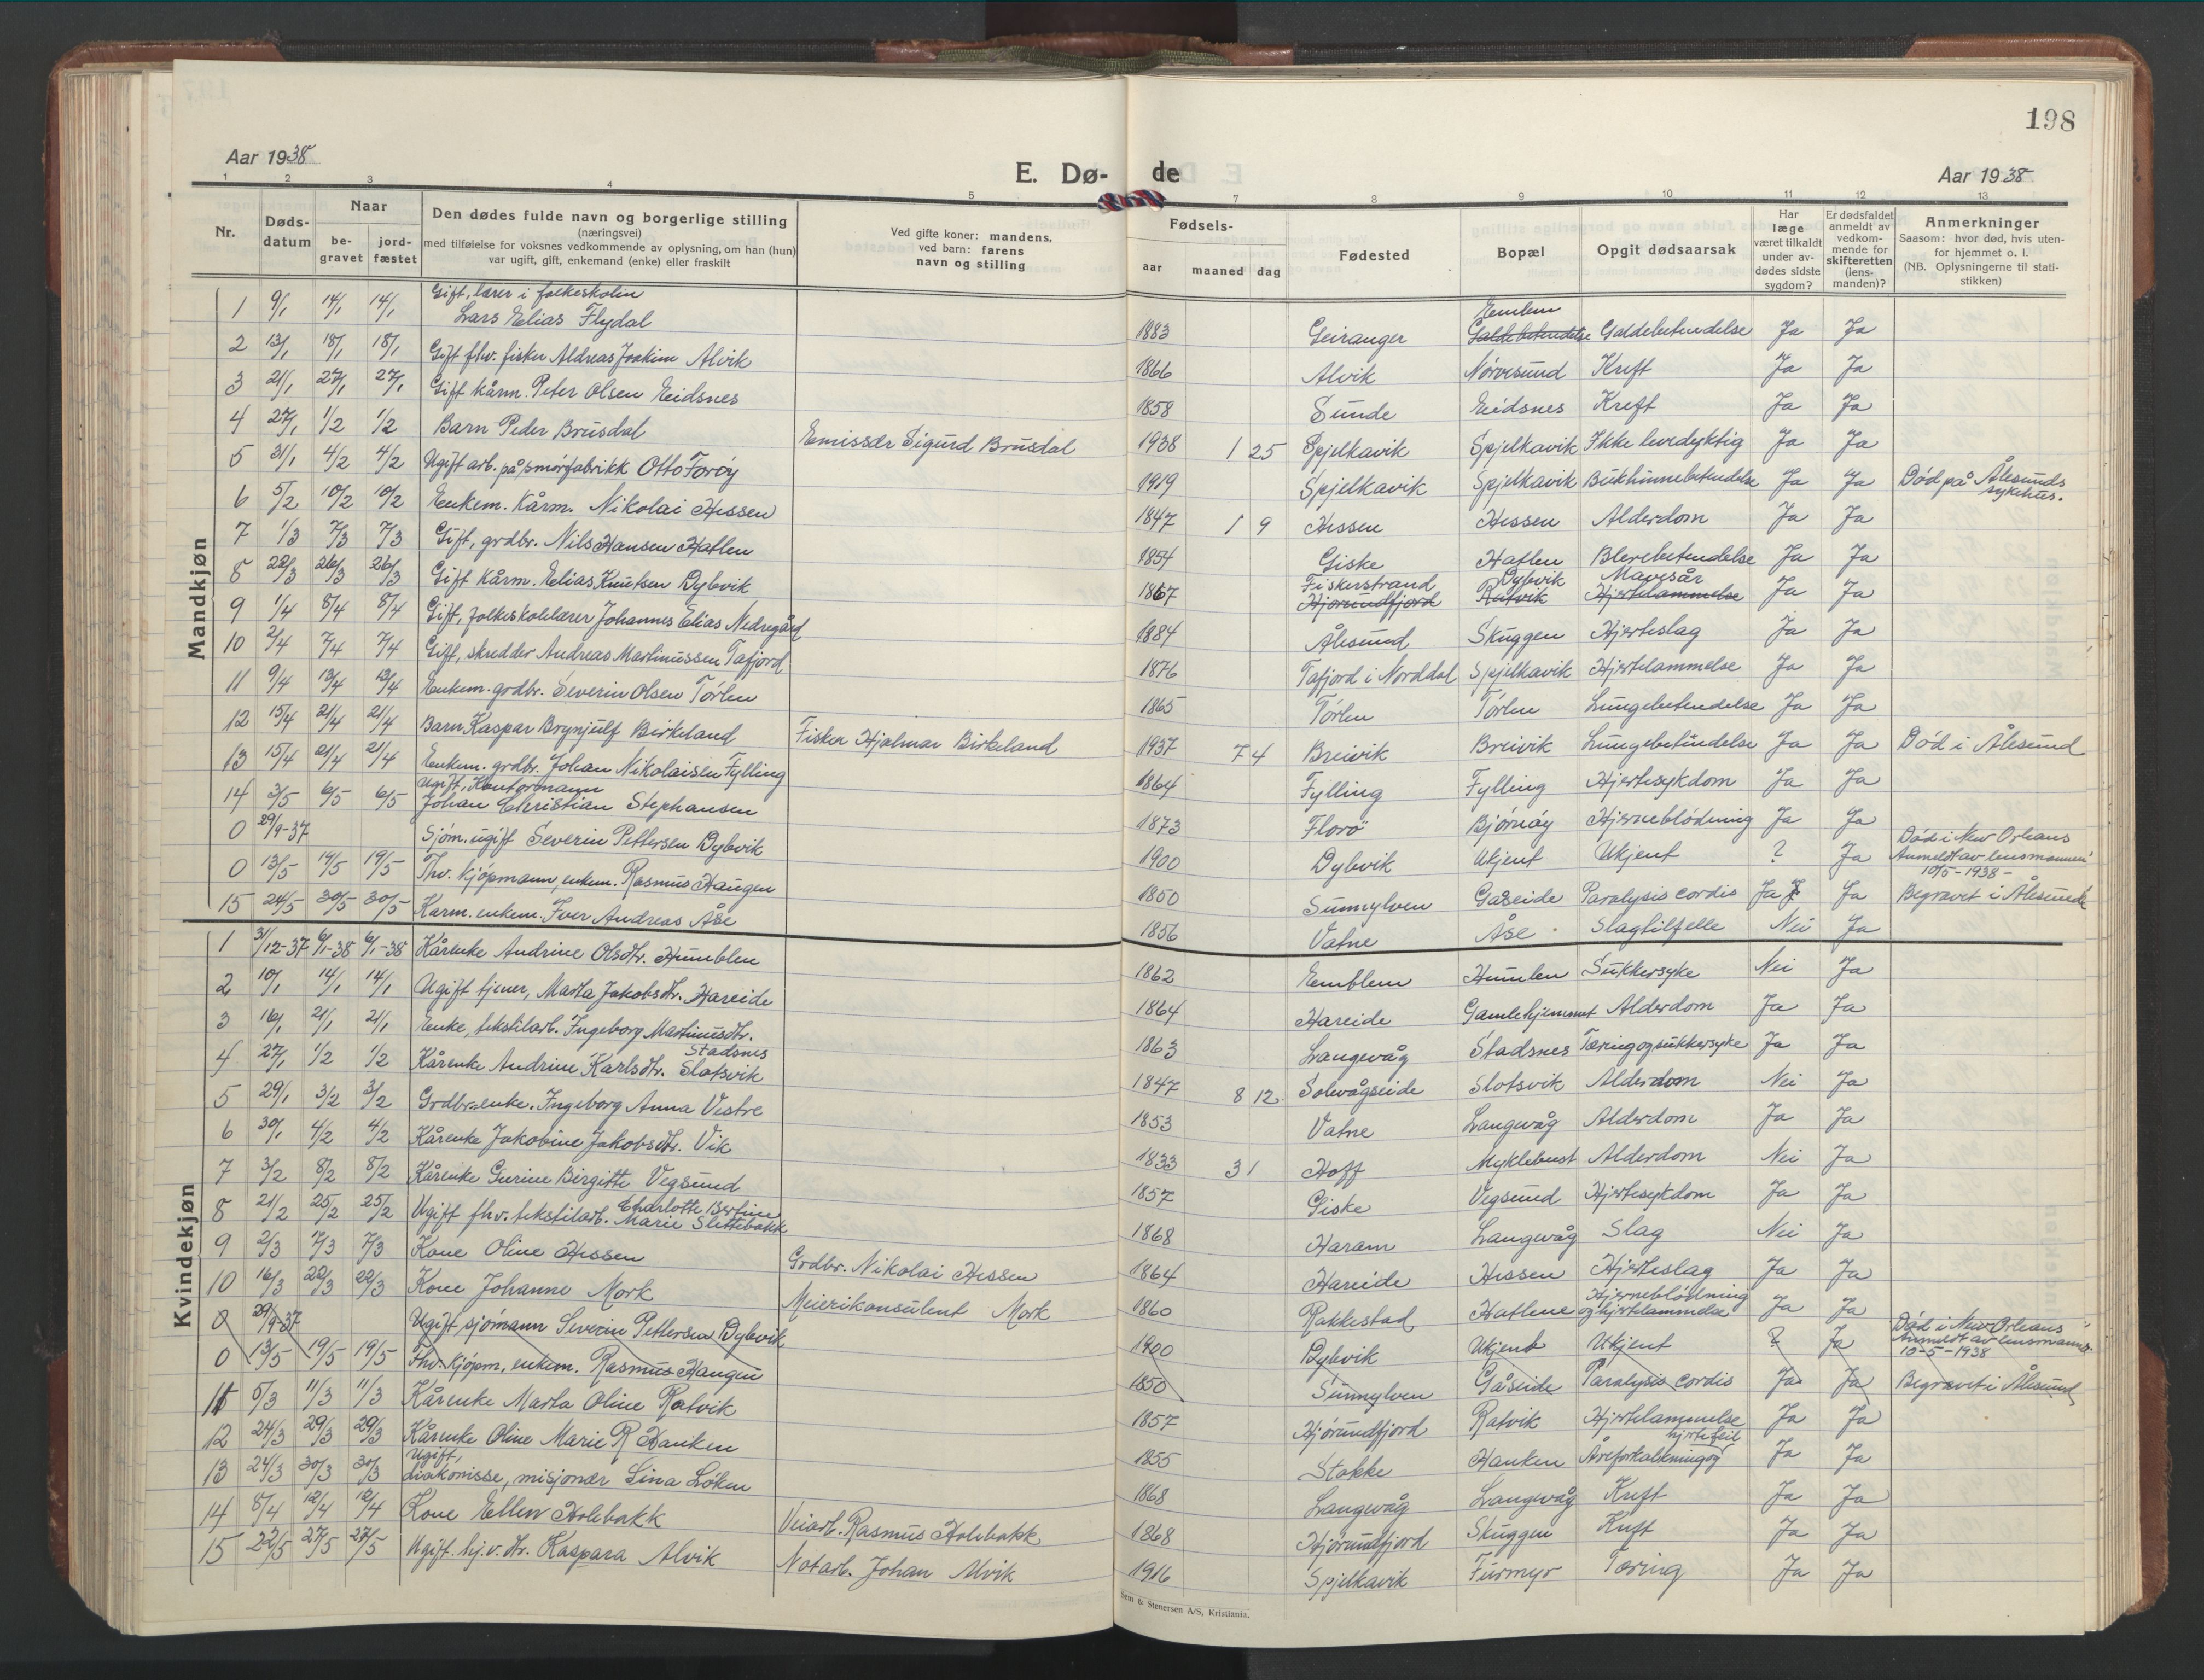 198
Aar 1938
E. Dø- de
Aar 1938
1 2 3 4 5 7 8 9 10 11 12 13
Nr. Døds-datum Naar be-gravet jord-fæstet Den dødes fulde navn og borgerlige stilling (næringsvei) med tilføielse for voksnes vedkommende av oplysning, om han (hun) var ugift, gift, enkemand (enke) eller fraskilt Ved gifte koner: mandens, ved barn: farens navn og stilling Fødsels- aar maaned dag Fødested Bopæl Opgit dødsaarsak Har læge været tilkaldt under av-dødes sidste sygdom? Er dødsfaldet anmeldt av vedkom-mende for skifteretten (lens-manden)? Anmerkninger Saasom: hvor død, hvis uten-for hjemmet o. l. (NB. Oplysningerne til stati-stikken)
Mandkjøn
1 9/1 14/1 14/1 Gift, lærer i folkeskolen Lars Elias Flydal 1883 Geiranger Emblem Galdebetendelse Galdebetendelse Ja Ja
2 13/1 18/1 18/1 Gift fhv. fisker Aldreas Joakim Alvik 1866 Alvik Nørvesund Kreft Ja Ja
3 21/1 27/1 27/1 Gift kårm. Peter Olsen Eidsnes 1858 Sunde Eidsnes Kreft Ja Ja
4 27/1 1/2 1/2 Barn Peder Brusdal Emissær Sigurd Brusdal 1938 1 25 Spjelkavik Spjelkavik Ikke levedyktig Ja Ja
5 31/1 4/2 4/2 Ugift arb. på smørfabrikk Otto Forøy 1919 Spjelkavik Spjelkavik Bukhinnebetendelse Ja Ja Død på Ålesunds sykehus.
6 5/2 10/2 10/2 Enkem. Kårm. Nikolai Hessen 1847 1 9 Hessen Hessen Alderdom Ja Ja
7 1/3 7/3 7/3 Gift, grdbr. Nils Hansen Hatlen 1854 Giske Hatlen Blerebetendelse Ja Ja
8 22/3 26/3 26/3 Gift kårm. Elias Knutsen Dybvik 1867 Fiskerstrand Hjørundfjord Dybvik Ratvik Mavesår Hjertelammelse Ja Ja
9 1/4 8/4 8/4 Gift, folkeskolelærer Johannes Elias Nedregård 1884 Ålesund Skuggen Hjerteslag Ja Ja
10 2/4 7/4 7/4 Gift, skredder Andreas Martinussen Tafjord 1876 Tafjord i Norddal Spjelkavik Hjertelammelse Ja Ja
11 9/4 13/4 13/4 Enkem. grdbr. Severin Olsen Tørlen 1865 Tørlen Tørlen Lungebetendelse Ja Ja
12 15/4 21/4 21/4 Barn Kaspar Brynjulf Birkeland Fisker Hjalmar Birkeland 1937 7 4 Breivik Breivik Lungebetendelse Ja Ja Død i Ålesund
13 15/4 21/4 21/4 Enkem. grdbr. Johan Nikolaisen Fylling 1864 Fylling Fylling Hjertesykdom Ja Ja
14 3/5 6/5 6/5 Ugift, Kontormann Johan Christian Stephansen 1873 Florø Bjørnøy Hjerneblødning Ja Ja
0 29/9-37 Sjøm. ugift Severin Pettersen Dybvik 1900 Dybvik Ukjent Ukjent ? Ja Død i New Orleans Anmeldt av lensmannen 10/5-1938-
0 13/5 19/5 19/5 Fhv. kjøpmann, enkem. Rasmus Haugen 1850 Sunnylven Gåseide Paralysis cordis Ja Ja Begravet i Ålesund
15 24/5 30/5 30/5 Karm. enkem. Iver Andreas Åse 1856 Vatne Åse Slagtilfelle Nei Ja
Kvindekjøn
1 31/12-37 6/1-38 6/1-38 Kårenke Andrine Olsdtr. Humblen 1862 Emblem Humlen Sukkersyke Nei Ja
2 10/1 14/1 14/1 Ugift tjener, Marta Jakobsdtr. Hareide 1864 Hareide Gamlehjemmet Alderdom Ja Ja
3 16/1 21/1 21/1 Enke, tekstilarb. Ingeborg Martinusdtr. Stadsnes 1863 Langevåg Stadsnes Tæring og sukkersyke Ja Ja
4 27/1 1/2 1/2 Kårenke Andrine Karlsdtr. Slotsvik 1847 8 12 Solevågseide Slotsvik Alderdom Nei Ja
5 29/1 3/2 3/2 Grdbr.enke. Ingeborg Anna Vestre 1853 Vatne Langevåg Alderdom Ja Ja
6 30/1 4/2 4/2 Kårenke Jakobine Jakobsdtr. Vik 1833 3 1 Hoff Myklebust Alderdom Nei Ja
7 3/2 8/2 8/2 Kårenke Gurine Birgitte Vegsund 1857 Giske Vegsund Hjertesykdom Ja Ja
8 21/2 25/2 25/2 Ugift fhv. tekstilarb. Charlotte Bertine Marie Slettebakk 1868 Haram Langevåg Slag Nei Ja
9 2/3 7/3 7/3 Kone Oline Hessen Grdbr. Nikolai Hessen 1864 Hareide Hessen Hjerteslag Ja Ja
10 16/3 22/3 22/3 Kone Johanne Mork Meierikonsulent Mork 1860 Rakkestad Hatlene Hjerneblødning og hjertelammelse Ja Ja
0 29/9-37 Ugift sjømann Severin Pettersen Dybvik 1900 Dybvik Ukjent Ukjent ? Ja Død i New Orleans Anmeldt av lensmannen 10-5-1938
0 13/5 19/5 19/5 Fhv. kjøpm. enkem. Rasmus Haugen 1850 Sunnylven Gåseide Paralysis cordis Ja Ja Begravet i Ålesund
11 5/3 11/3 11/3 Kårenke Marta Oline Ratvik 1857 Hjørundfjord Ratvik Hjertelammelse Ja Ja
12 24/3 29/3 29/3 Kårenke Oline Marie R Hanken 1855 Stokke Hanken Åreforkalkning og hjertefeil Ja Ja
13 24/3 30/3 30/3 Ugift, diakonisse, misjonær Lina Løken 1868 Langevåg Langevåg Kreft Ja Ja
14 8/4 12/4 12/4 Kone Ellen Holebakk Veiarb. Rasmus Holebakk 1868 Hjørundfjord Skuggen Kreft Ja Ja
15 22/5 27/5 27/5 Ugift hj.v. dtr. Kaspara Alvik Notarb. Johan Alvik 1916 Spjelkavik Furmyr Tæring Ja Ja
Sem & Stenersen A/S, Kristiania.